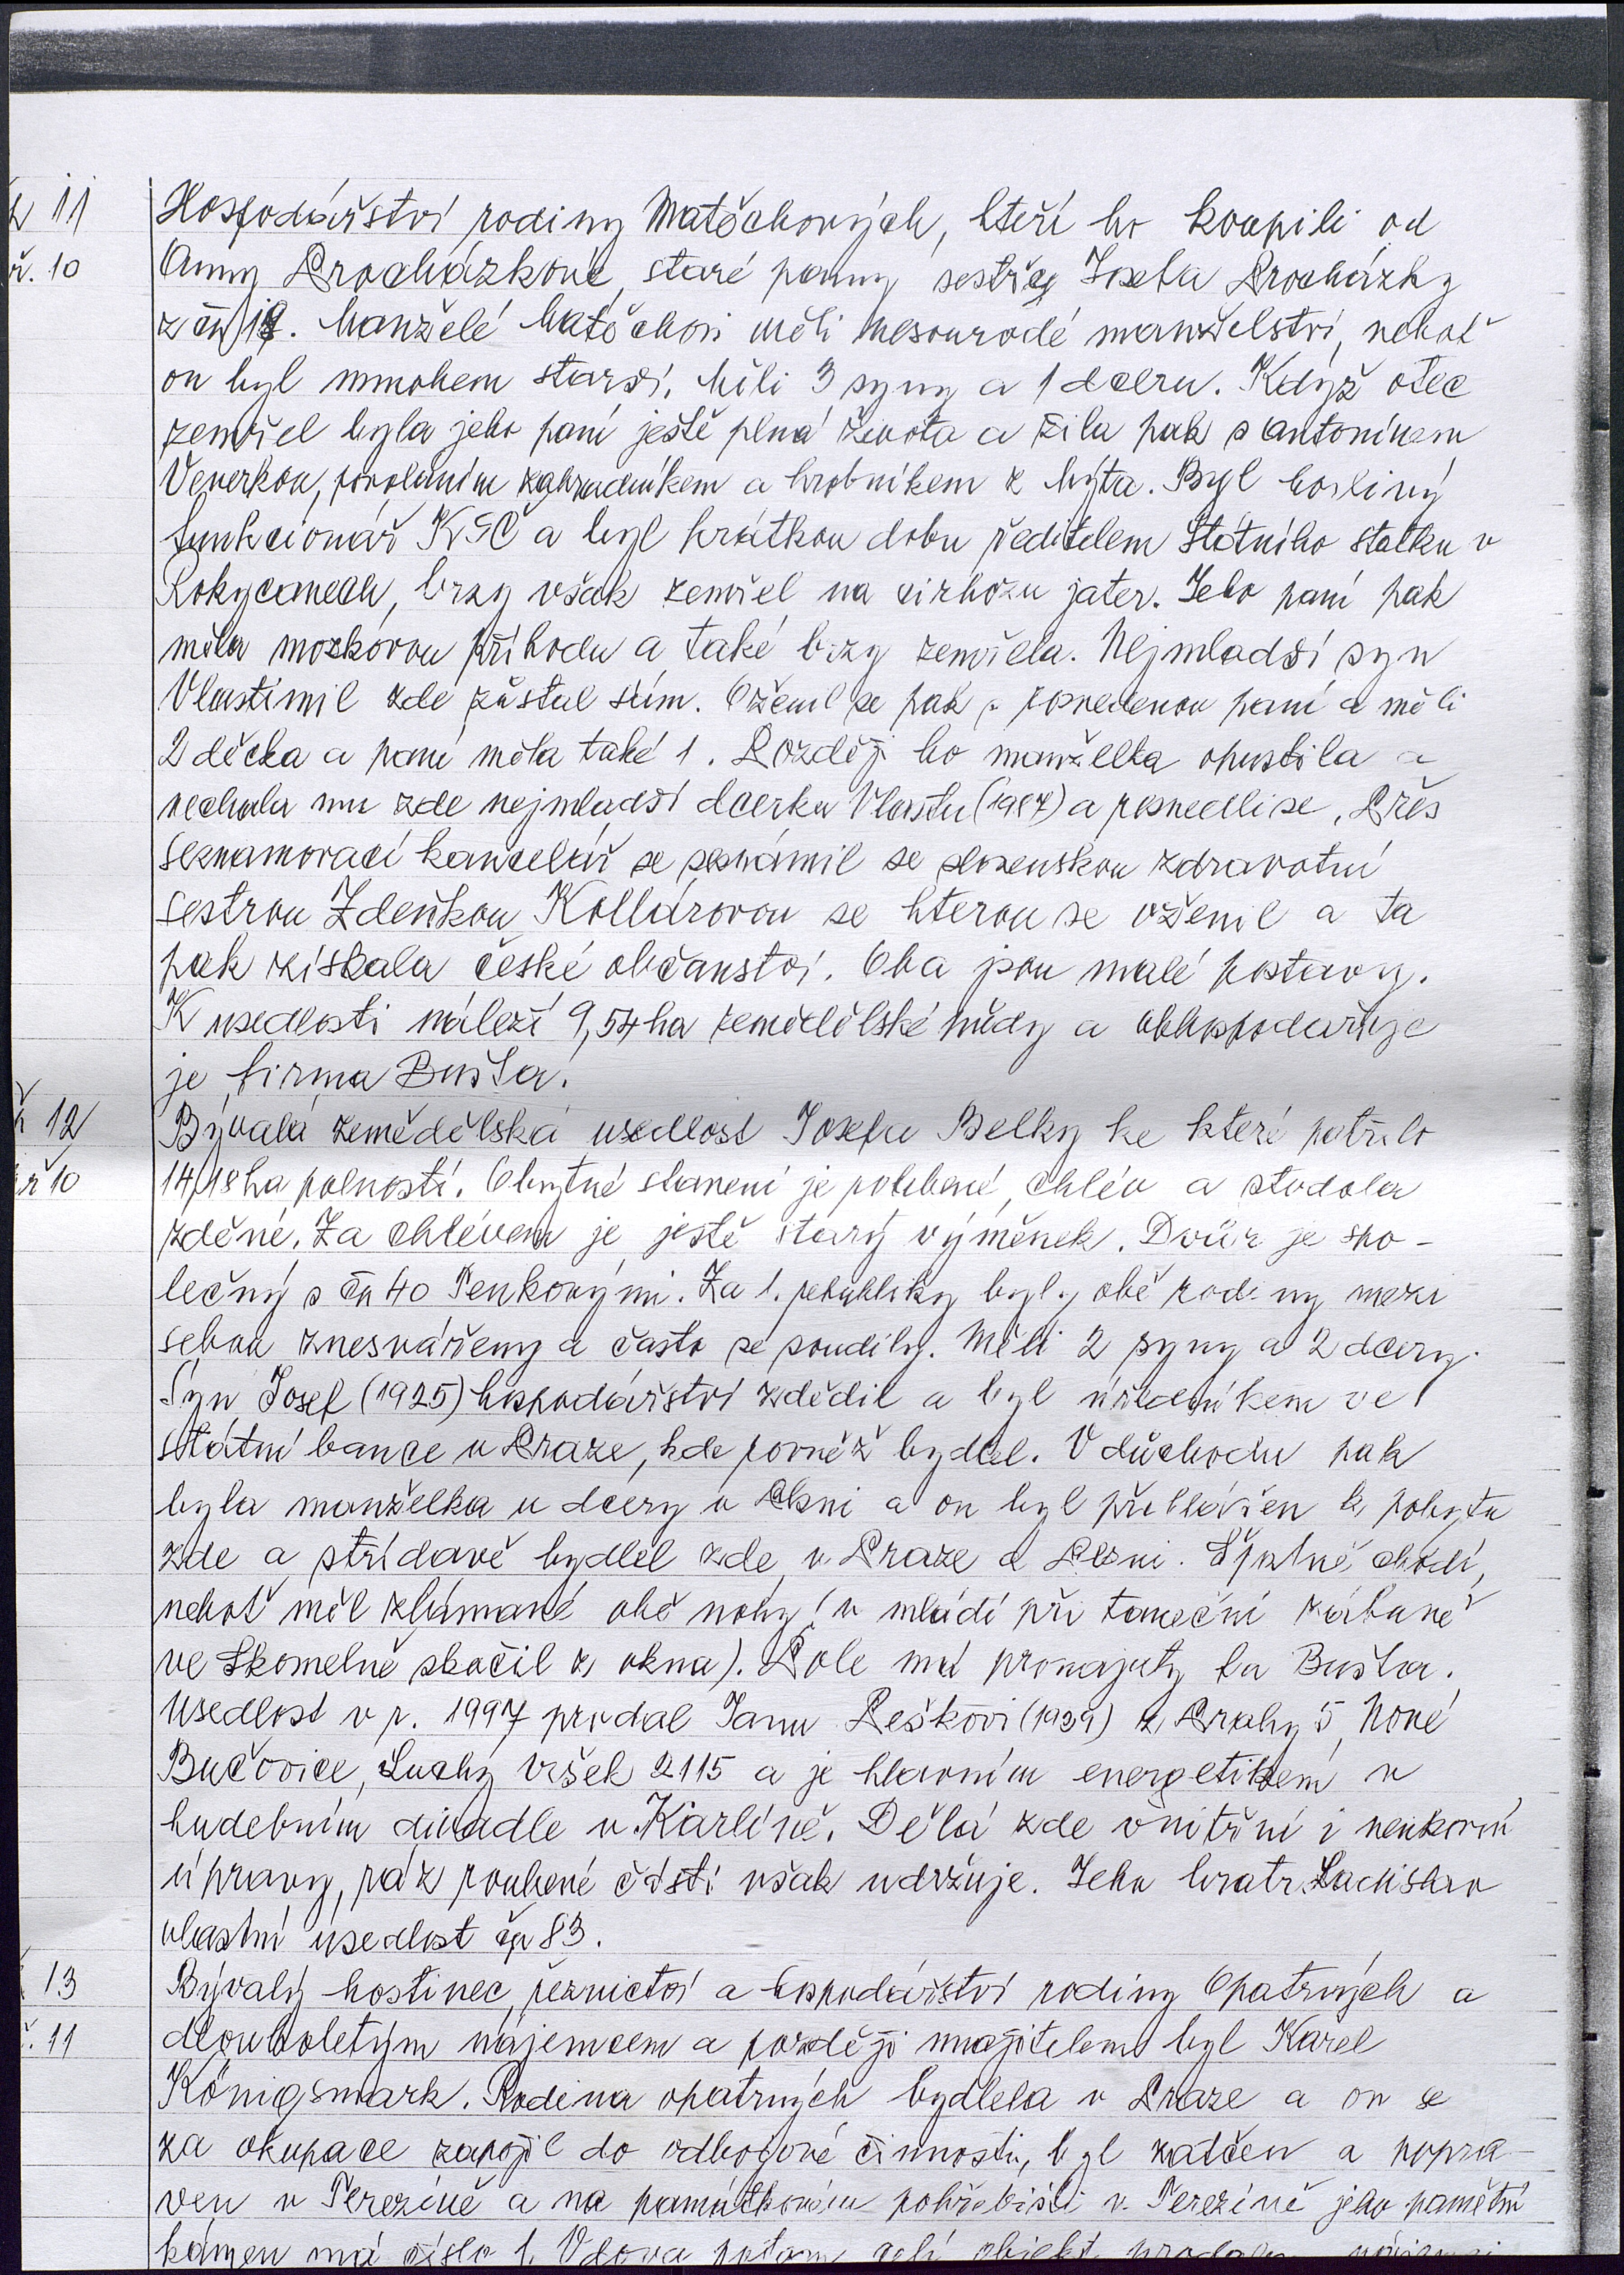 11
10
Hospodářství rodiny Matěchových, kteří ho koupili od
Anny Procházkové, staré panny sestry Josefa Procházky
z čp 18. Manželé Matěchovi měli nesourodé manželství, neboť
on byl mnohem starší. Měli 3 syny a 1 dceru. Když otec
zemřel byla jeho paní ještě plná života a žila pak s Antonínem
Veverkou, povoláním zahradníkem a hrobníkem z Mýta. Byl horlivý
funkcionář KSČ a byl krátkou dobu ředitelem Státního statku v
Rokycanech, brzy však zemřel na cirhozu jater. Jeho paní pak
měla mozkovou příhodu a také brzy zemřela. Nejmladší syn
Vlastimil zde zůstal sám. Oženil se pak s rozvedenou paní a měli
2 děcka a paní měla také 1. Později ho manželka opustila a
nechala mu zde nejmladší dcerku Vlastu (1987) a rozvedli se. Přes
seznamovací kancelář se seznámil se slovenskou zdravotní
sestrou Zdeňkou Kollárovou se kterou se oženil a ta
pak získala české občanství. Oba jsou malé postavy.
K usedlosti náleží 9,54 ha zemědělské půdy a obhospodařuje
je firma Bušta.
12
10
Bývalá zemědělská usedlost Josefa Belky ke které patřilo
14,18 ha polností. Obytné stavení je roubené, chlév a stodola
zděné. Za chlévem je ještě starý výměnek. Dvůr je spo-
lečný s čp 40 Penkovými. Za 1. republiky byly obě rodiny mezi
sebou znesvářeny a často se soudily. Měli 2 syny a 2 dcery.
Syn Josef (1925) hospodářství zdědil a byl úředníkem ve
státní bance v Praze, kde rovněž bydlel. V důchodu pak
byla manželka u dcery v Plzni a on byl přihlášen k pobytu
zde a střídavě bydlel zde, v Praze a Plzni. Špatně chodí,
neboť měl zlámané obě nohy (v mládí při taneční zábavě
ve Skomelně skočil z okna). Pole má pronajaty fa Bušta.
Usedlost v r. 1997 prodal Janu Peškovi (1939) z Prahy 5, Nové
Bučovice, Suchý vršek 2115 a je hlavním energetikem v
hudebním divadle v Karlíně. Dělá zde vnitřní i venkovní
úpravy, ráz roubené části však udržuje. Jeho bratr Ladislav
vlastní usedlost čp 83.
13
11
Bývalý hostinec, řeznictví a hospodářství rodiny Opatrných a
dlouholetým nájemcem a později majitelem byl Karel
Königsmark. Rodina opatrných bydlela v Praze a on se
za okupace zapojil do odbojové činnosti, byl zatčen a popra-
ven v Terezíně a na památkovém pohřebišti v Terezíně jeho pamětní
kámen má číslo 1. Vdova potom celý objekt prodala